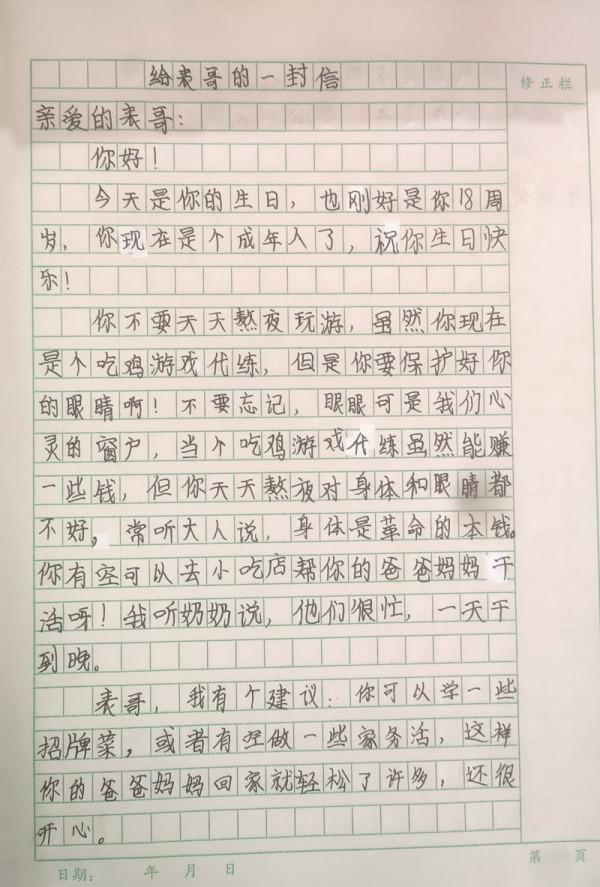 给表哥的一封信
修正栏
亲爱的表哥:
你好!
今天是你的生日,也刚好是你18周
岁,你现在是个成年人了,祝你生日快
乐!
你不要天天熬夜玩游,虽然你现在
是个吃鸡游戏代练,但是你要保护好你
的眼睛啊!不要忘记,眼眼可是我们心
灵的窗户,当个吃鸡游戏代练虽然能赚
一些钱,但你天天熬夜对身体和眼睛都
不好,常听大人说,身体是革命的本钱。
你有空可以去小吃店帮你的爸爸妈妈干
活呀!我听奶奶说,他们很忙,一天干
到晚。
表哥,我有个建议:你可以学一些
招牌菜,或者有空做一些家务活,这样
你的爸爸妈妈回家就轻松了许多,还很
开心。
日期: 年 月 日
第 页